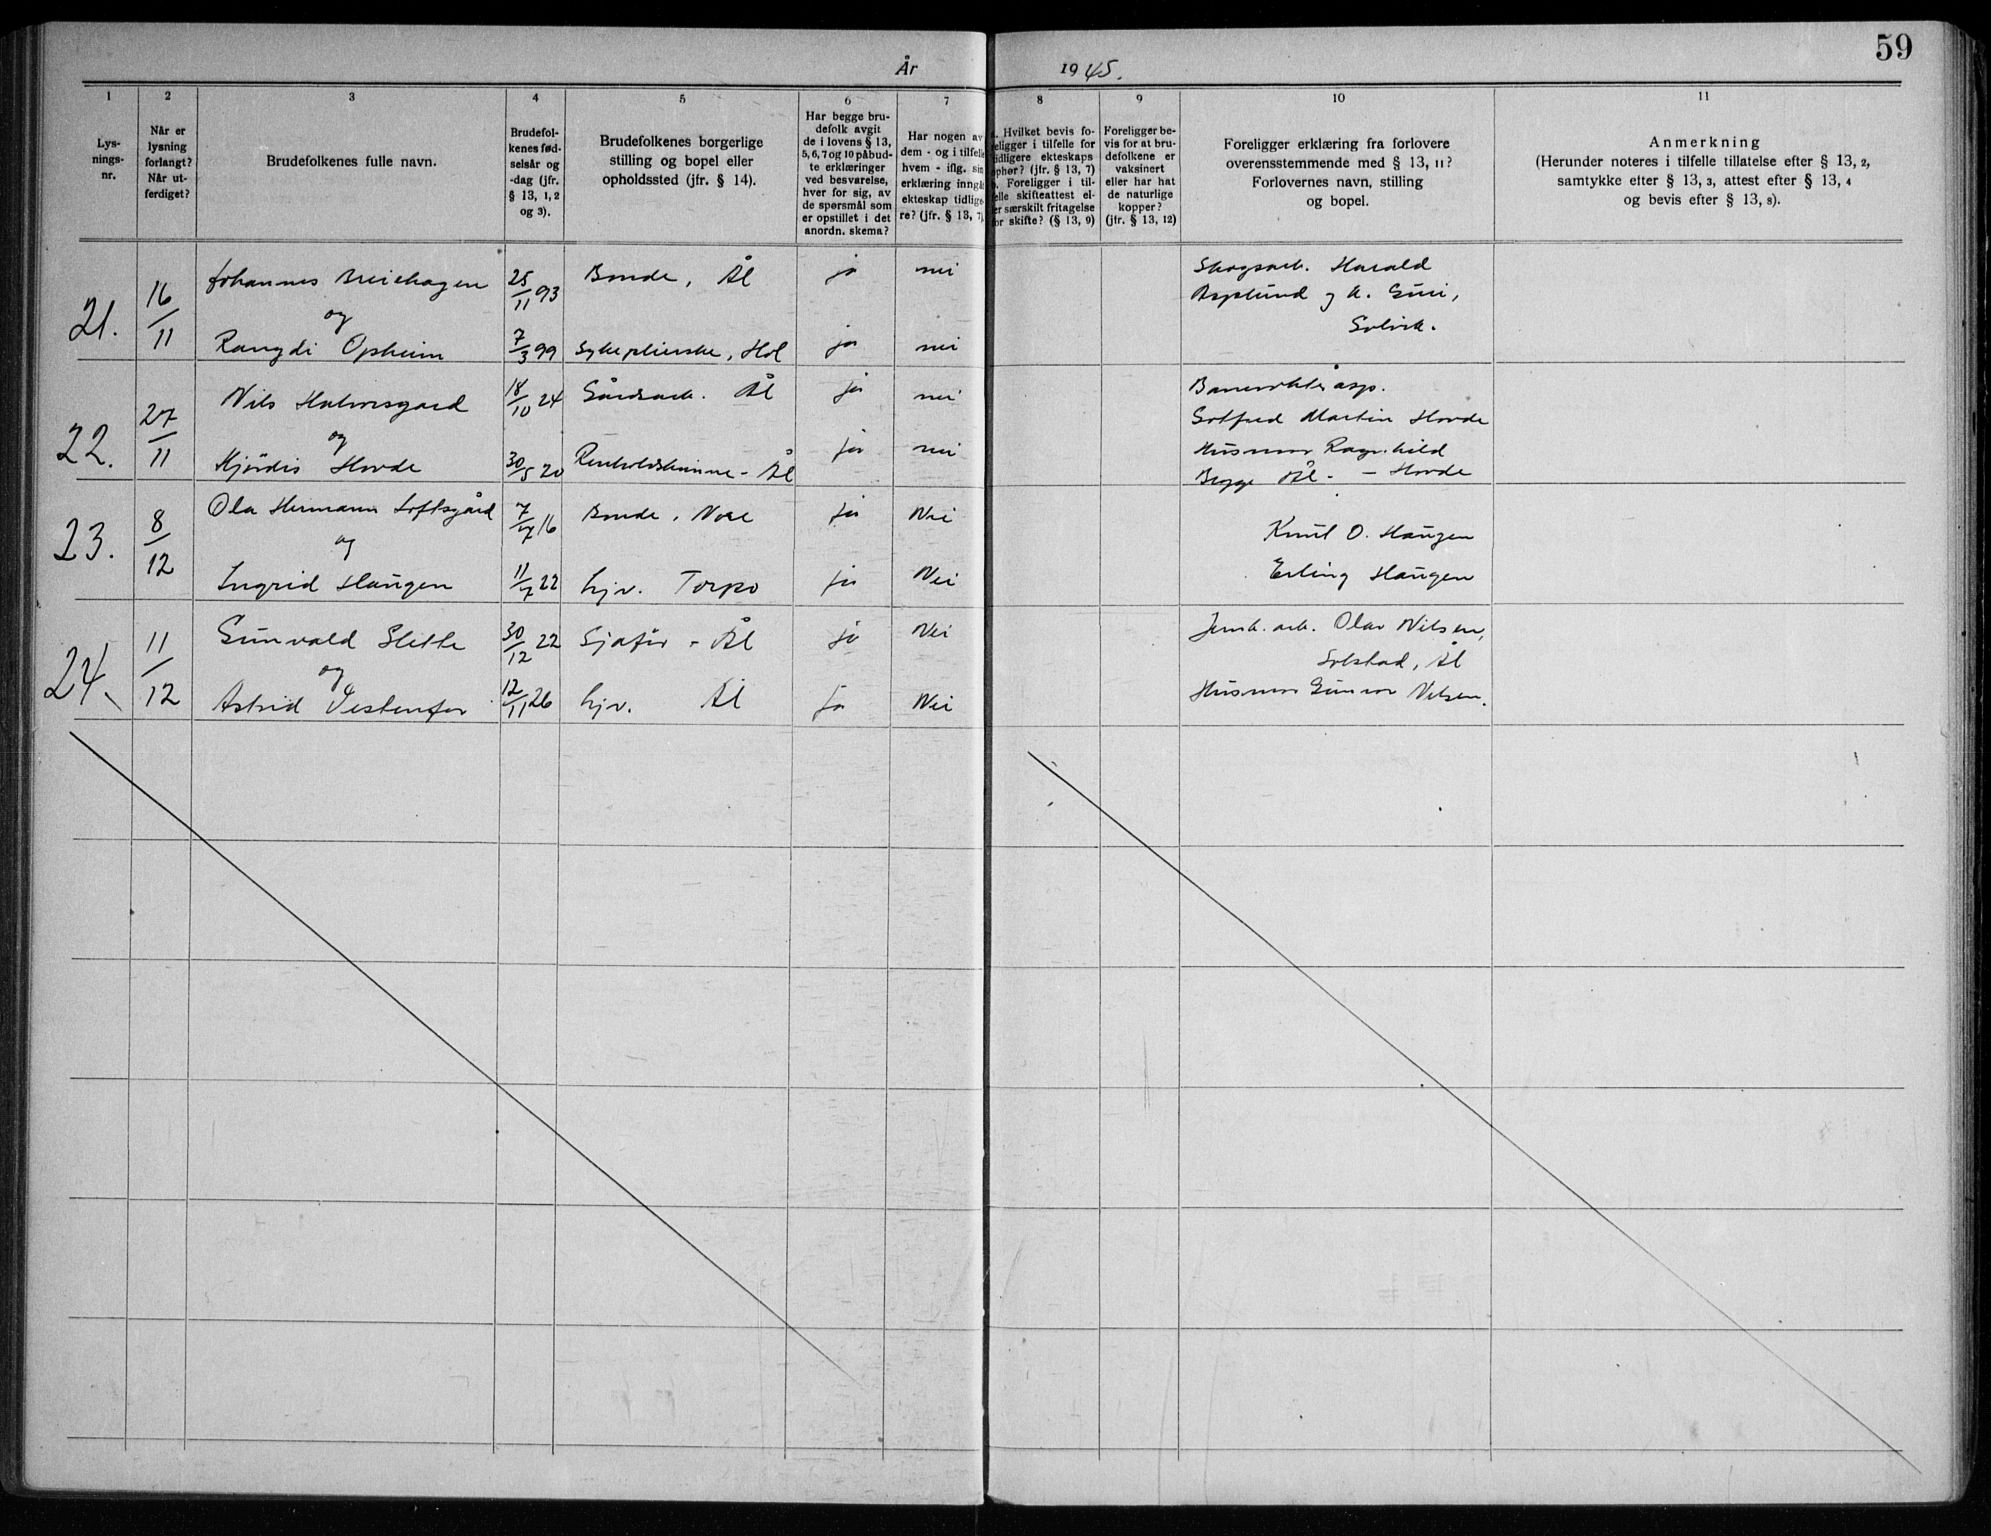 59
År 1945.
1 2 3 4 5 6 7 8 9 10 11
Lys-
nings-
nr.
Når er
lysning
forlangt?
Når ut-
ferdiget?
Brudefolkenes fulle navn.
Brudefol-
kenes fød-
selsår og
-dag (jfr.
§ 13, 1, 2
og 3).
Brudefolkenes borgerlige
stilling og bopel eller
opholdssted (jfr. § 14).
Har begge bru-
defolk avgit
de i lovens § 13,
5, 6, 7 og 10 påbud-
te erklæringer
ved besvarelse,
hver for sig, av
de spørsmål som
er opstillet i det
anordn. skema?
Har nogen av
dem - og i tilfelle
hvem - iflg. sin
erklæring inngå
ekteskap tidlige-
re? (jfr. § 13, 7)
a. Hvilket bevis fo-
religger i tilfelle for
tidligere ekteskaps
ophør? (jfr. § 13, 7)
b. Foreligger i til-
felle skifteattest el-
er særskilt fritagelse
for skifte? (§ 13, 9)
Foreligger be-
vis for at bru-
defolkene er
vaksinert
eller har hat
de naturlige
kopper?
(jfr. § 13, 12)
Foreligger erklæring fra forlovere
overensstemmende med § 13, 11?
Forlovernes navn, stilling
og bopel.
Anmerkning
(Herunder noteres i tilfelle tillatelse efter § 13, 2,
samtykke efter § 13, 3, attest efter § 13, 4
og bevis efter § 13, 8).
21. 16/11 Johannes Breiehagen 25/11 93 Bonde, Ål ja nei
og
Rangdi Opheim 7/3 99 Sykepleierske, Hol ja nei
Skogsarb. Harald
Asplund og h. Guri,
Solvik.
22. 27/11 Nils Halvorsgard 18/10 24 Gårdsarb. Ål ja nei
og
Hjørdis Hovde 30/5 20 Renholdskvinne - Ål ja nei
Banevokterasp.
Gotfred Martin Hovde
Husmor Ragnhild
Begge Ål - - Hovde
23. 8/12 Ola Hermann Loftsgård 7/7 16 Bonde, Nore ja Nei
og
Ingrid Haugen 11/7 22 hjv. Torpo ja Nei
Knut O. Haugen
Erling Haugen
24. 11/12 Gunvald Slette 30/12 22 Sjåfør - Ål ja Nei
og
Astrid Vestenfor 12/11 26 hjv. Ål ja Nei
Jernb. arb. Olav Nilsen,
Solstad, Ål
Husmor Gunvor Nilsen.